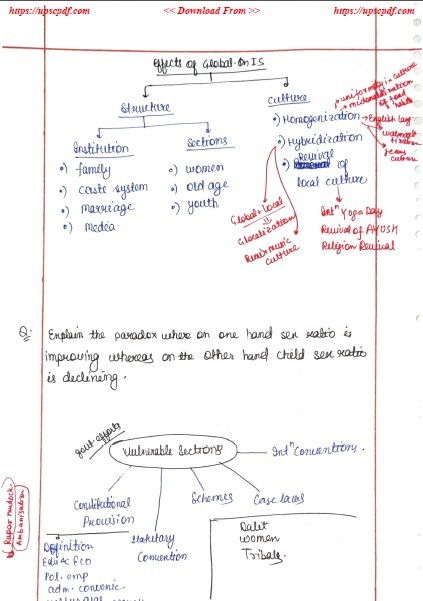 https://upscpdf.com
<< Download From >>
https://upscpdf.com
Effects of Global. On IS
Structure
Culture
Institution
Sections
•) family
•) Caste System
•) Marriage
•) Media
•) women
•) old age
•) youth
•) Homogenization
uniformity in culture
mcdonaldization of food habits
English lang
Jeans culture
•) Hybridization
Global + Local
Glocalization
Remix music culture
•) Revival of
local culture
Intⁿ Yoga Day
Revival of AYUSH
Religion Revival
Q: Explain the paradox where on one hand sex ratio is
improving whereas on the other hand child sex ratio
is declining.
govt. efforts
Vulnerable Sections
Intⁿ Conventions.
Constitutional
Provision
Statutary
Convention
Schemes
Case laws
Definition
Edu & Eco
Pol. emp
adm. convenic.
Dalit
women
Tribals.
Rupar mudock
Ambanisation